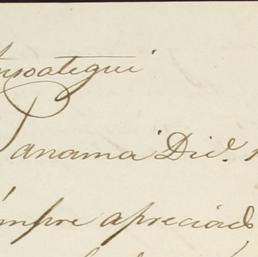 nsoategui
Panamá Dic.
mpre apreciad